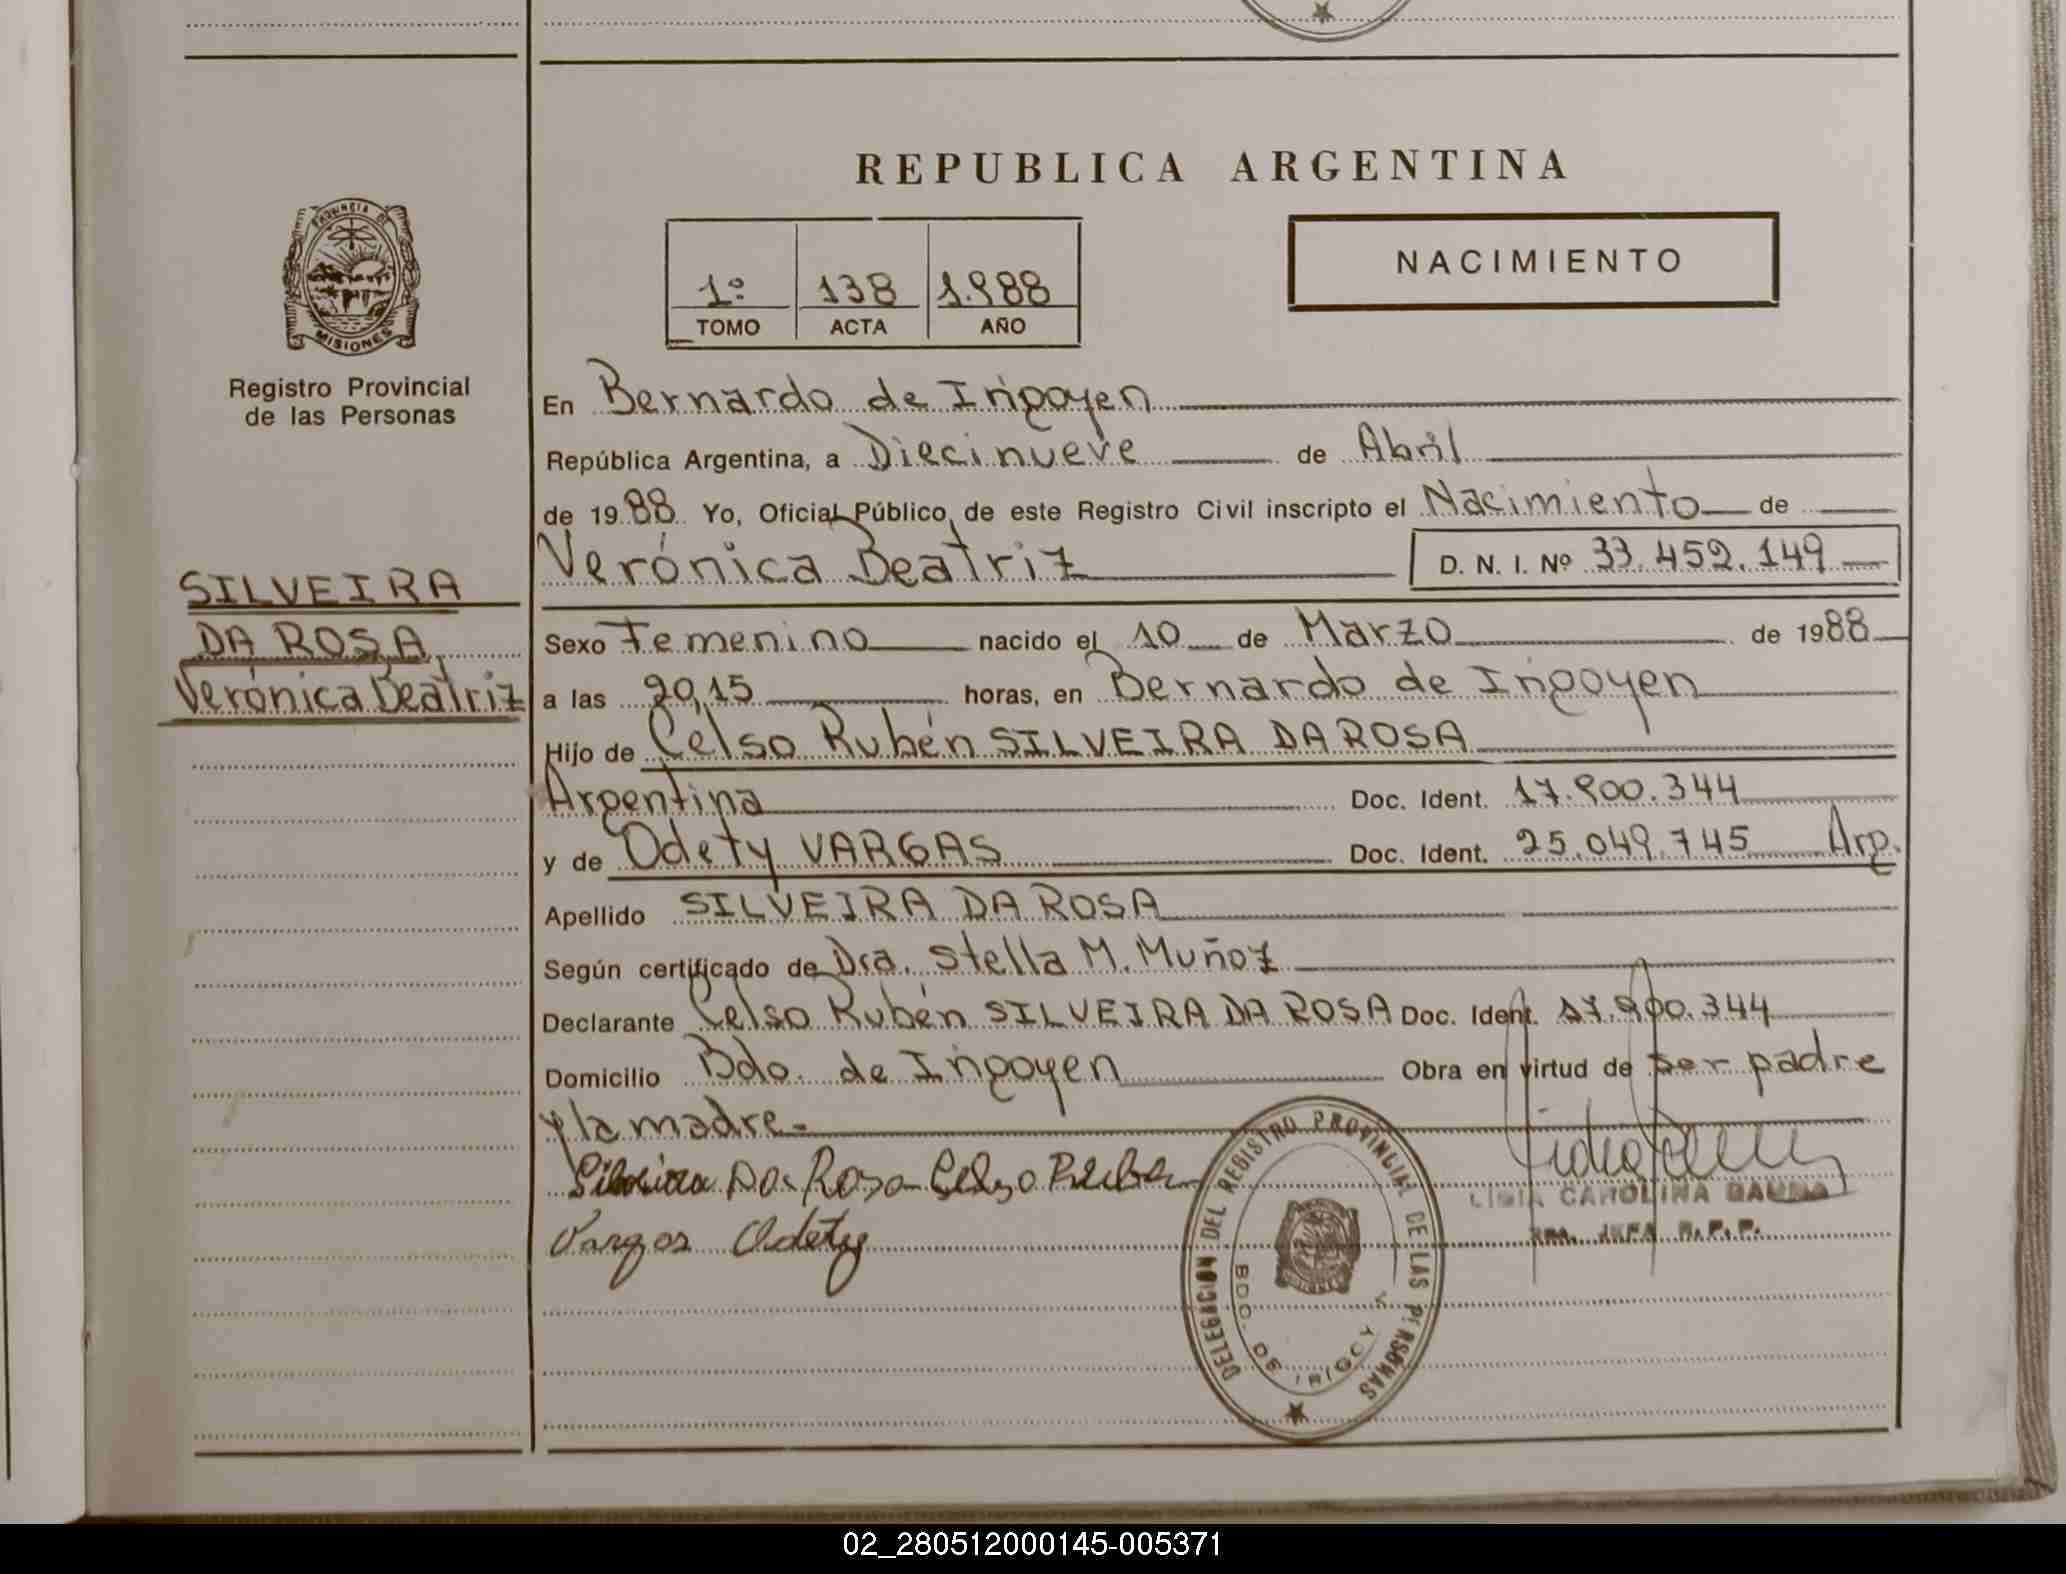 REPUBLICA ARGENTINA
PROVINCIA DE MISIONES
Registro Provincial
de las Personas
1º 138 1.988
TOMO ACTA AÑO
NACIMIENTO
En Bernardo de Irigoyen
República Argentina, a Diecinueve de Abril
de 1988 Yo, Oficial Público, de este Registro Civil inscripto el Nacimiento de
Verónica Beatriz D. N. I. Nº 33.452.149
SILVEIRA
DA ROSA
Verónica Beatriz
Sexo Femenino nacido el 10 de Marzo de 1988
a las 20,15 horas, en Bernardo de Irigoyen
Hijo de Celso Rubén SILVEIRA DA ROSA
Argentina Doc. Ident. 17.900.344
y de Odety VARGAS Doc. Ident. 25.049.745 Arg.
Apellido SILVEIRA DA ROSA
Según certificado de Dra. Stella M. Muñoz
Declarante Celso Rubén SILVEIRA DA ROSA Doc. Ident. 17.900.344
Domicilio Bdo. de Irigoyen Obra en virtud de ser padre
y la madre.-
Silveira Da Rosa Celso Ruben
Vargas Odety
CAROLINA
JEFA R.P.P.
DELEGACION DEL REGISTRO PROVINCIAL DE LAS PERSONAS
BDO. DE IRIGOYEN
02_280512000145-005371